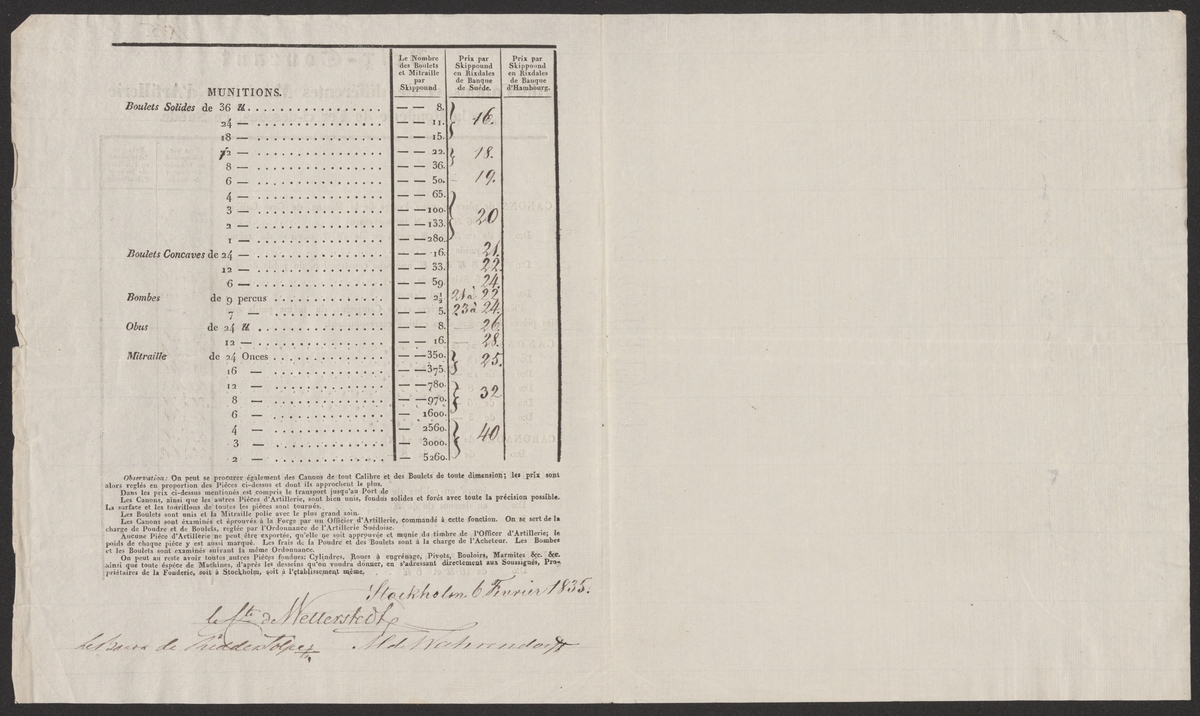 MUNITIONS.
Le Nombre des Boulets et Mitraille par Skippound
Prix par Skippound en Rixdales de Banque de Suède.
Prix par Skippound en Rixdales de Banque d'Hambourg.
Boulets Solides de 36 ℔ — — 8.
24 — — — 11. 16.
18 — — — 15.
12 — — — 22. 18.
8 — — — 36.
6 — — — 50. — 19.
4 — — — 65.
3 — — — 100. 20
2 — — — 133.
1 — — — 280.
Boulets Concaves de 24 — — — 16. 21.
12 — — — 33. 22.
6 — — — 59. 24.
Bombes de 9 percus — — 2½ 21 à 22
7 — — — 5. 23 à 24.
Obus de 24 ℔ — — 8. — 26.
12 — — — 16. — 28.
Mitraille de 24 Onces — — 350. 25.
16 — — — 375.
12 — — — 780. 32
8 — — — 970.
6 — — 1600.
4 — — 2560. 40
3 — — 3000.
2 — — 5260.
Observation: On peut se procurer également des Canons de tout Calibre et des Boulets de toute dimension; les prix sont
alors reglés en proportion des Piéces ci-dessus et dont ils approchent le plus.
Dans les prix ci-dessus mentionés est compris le transport jusqu'au Port de
Les Canons, ainsi que les autres Piéces d'Artillerie, sont bien unis, fondus solides et forés avec toute la précision possible.
La surface et les tourillons de toutes les piéces sont tournés.
Les Boulets sont unis et la Mitraille polie avec le plus grand soin.
Les Canons sont éxaminés et éprouvés à la Forge par un Officier d'Artillerie, commandé à cette fonction. On se sert de la
charge de Poudre et de Boulets, reglée par l'Ordonnance de l'Artillerie Suédoise.
Aucune Piéce d'Artillerie ne peut être exportée, qu'elle ne soit appruvée et munie du timbre de l'Officer d'Artillerie; le
poids de chaque piéce y est aussi marqué. Les frais de la Poudre et des Boulets sont à la charge de l'Acheteur. Les Bombes
et les Boulets sont examinés suivant la même Ordonnance.
On peut au reste avoir toutes autres Piéces fondues: Cylindres, Roues à engrénage, Pivots, Bouloirs, Marmites &c. &c.
ainsi que toute éspéce de Machines, d'après les desseins qu'on voudra donner, en s'adressant directement aux Soussignés, Pro-
priétaires de la Fonderie, soit à Stockholm, soit à l'etablissement même.
Stockholm 6 Fevrier 1835.
le Cte de Wetterstedt
le Baron de M de Wahrendorff